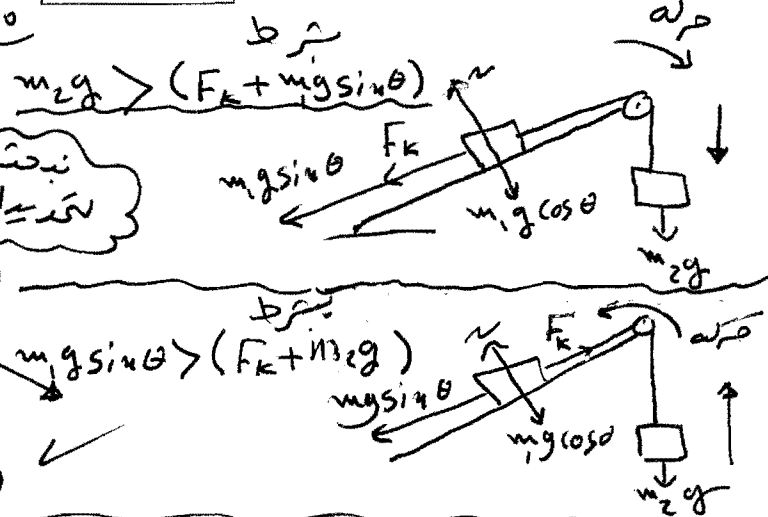 بشرط
حركة
m₂g > (Fₖ + m₁g sinθ)
N
Fₖ
m₁g sinθ
m₁g cosθ
m₂g
بشرط
حركة
m₁g sinθ > (Fₖ + m₂g)
N
Fₖ
mg sinθ
m₁g cosθ
m₂g